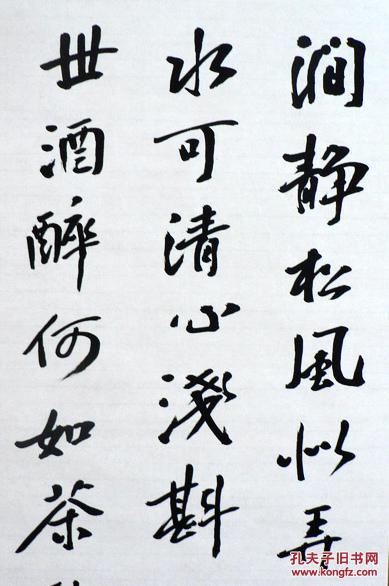 涧静松风似弄
水可清心浅斟
世酒醉何如茶
孔夫子旧书网
www.kongfz.com